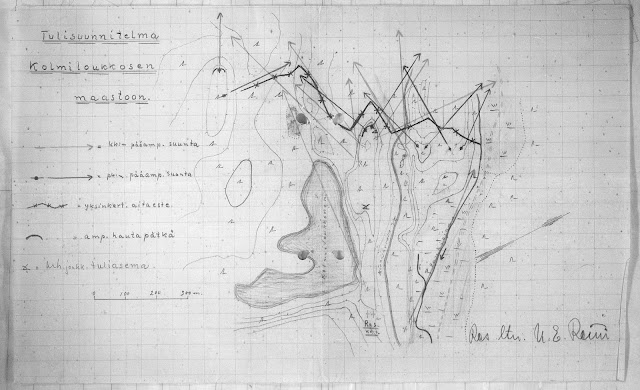 Tulisuunnitelma
Kolmiloukkosen
maastoon.
= kk:n pääamp. suunta
= pk:n pääamp. suunta
= yksinkert. aitaeste.
= amp. hautapätkä
= krh. joukk. tuliasema.
0 100 200 300 m.
Res. ltn. U. E.